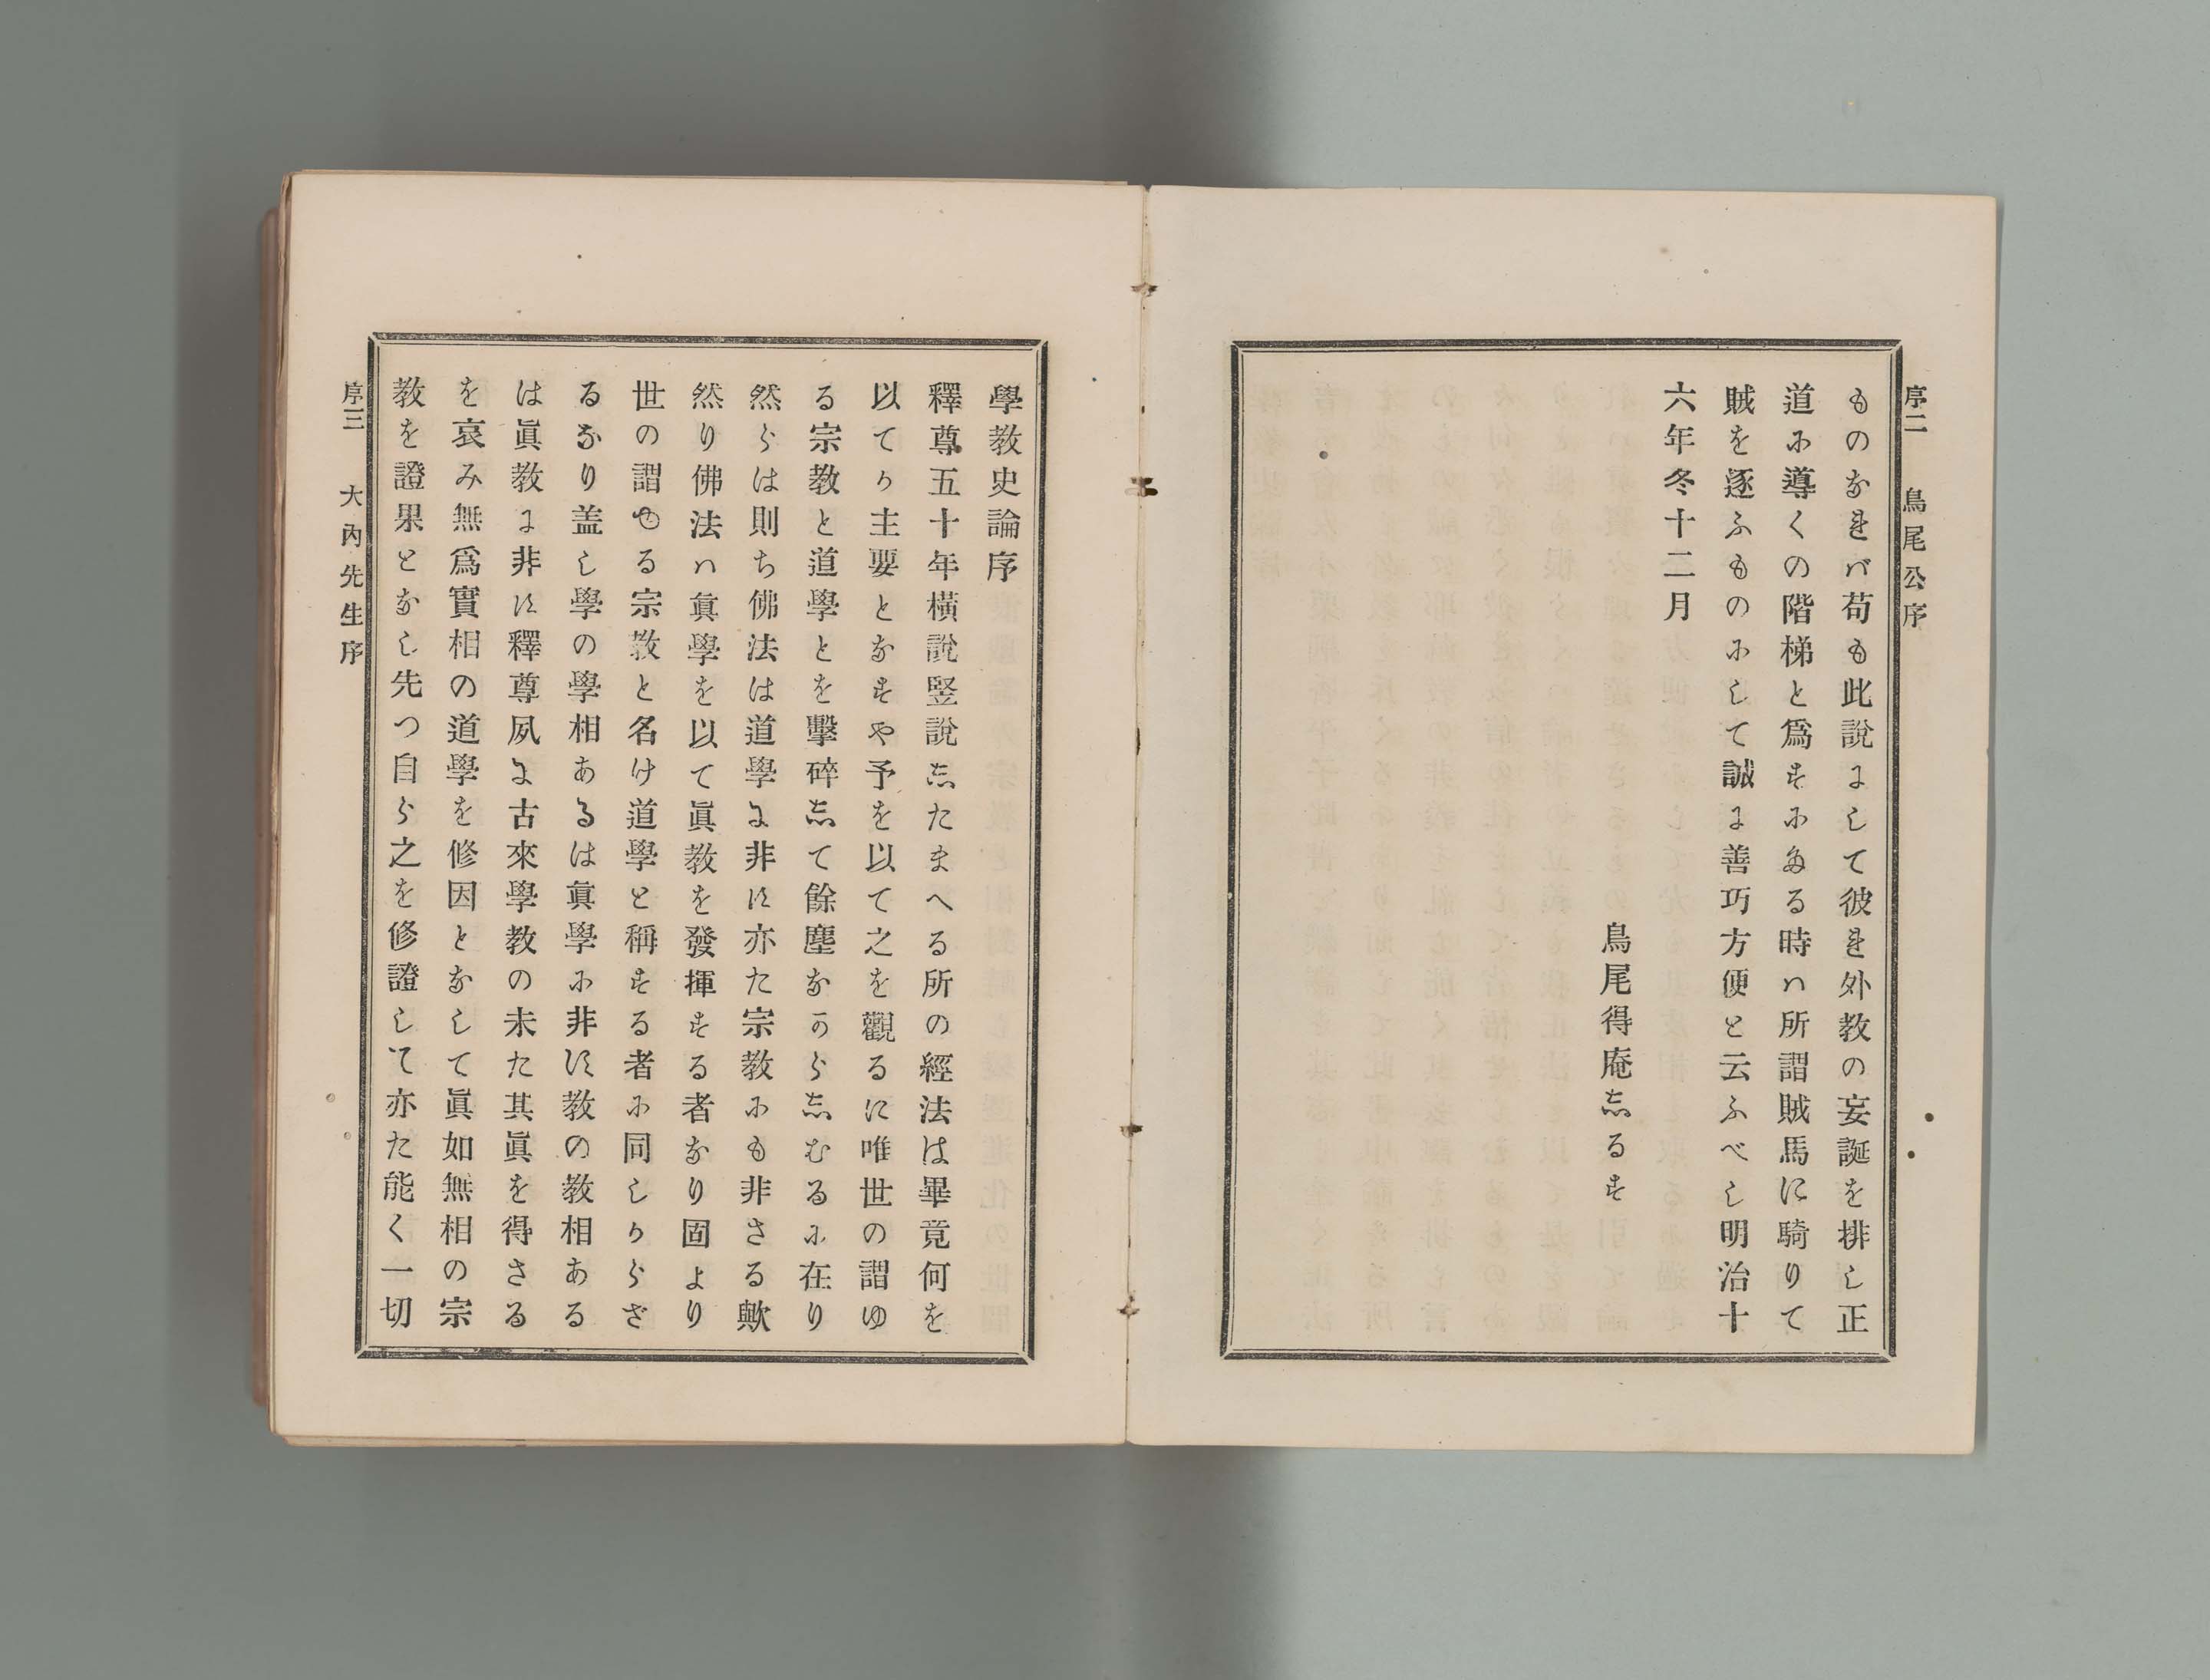 序二　鳥尾公序
ものなれバ苟も此說にして彼れ外教の妄誕を排し正
道に導くの階梯と爲すにある時ハ所謂賊馬に騎りて
賊を逐ふものにして誠に善巧方便と云ふべし明治十
六年冬十二月
鳥尾得庵志るす
學教史論序
釋尊五十年橫說竪說志たまへる所の經法は畢竟何を
以てか主要となすや予を以て之を觀るに唯世の謂ゆ
る宗教と道學とを擊碎志て餘塵なから志むるに在り
然らは則ち佛法は道學に非す亦た宗教にも非さる歟
然り佛法ハ眞學を以て眞教を發揮する者なり固より
世の謂ゆる宗教と名け道學と稱する者に同しからざ
るなり盖し學の學相あるは眞學に非す教の教相ある
は眞教に非す釋尊夙に古來學教の未た其眞を得さる
を哀み無爲實相の道學を修因となして眞如無相の宗
教を證果となし先つ自ら之を修證して亦た能く一切
序三　大內先生序